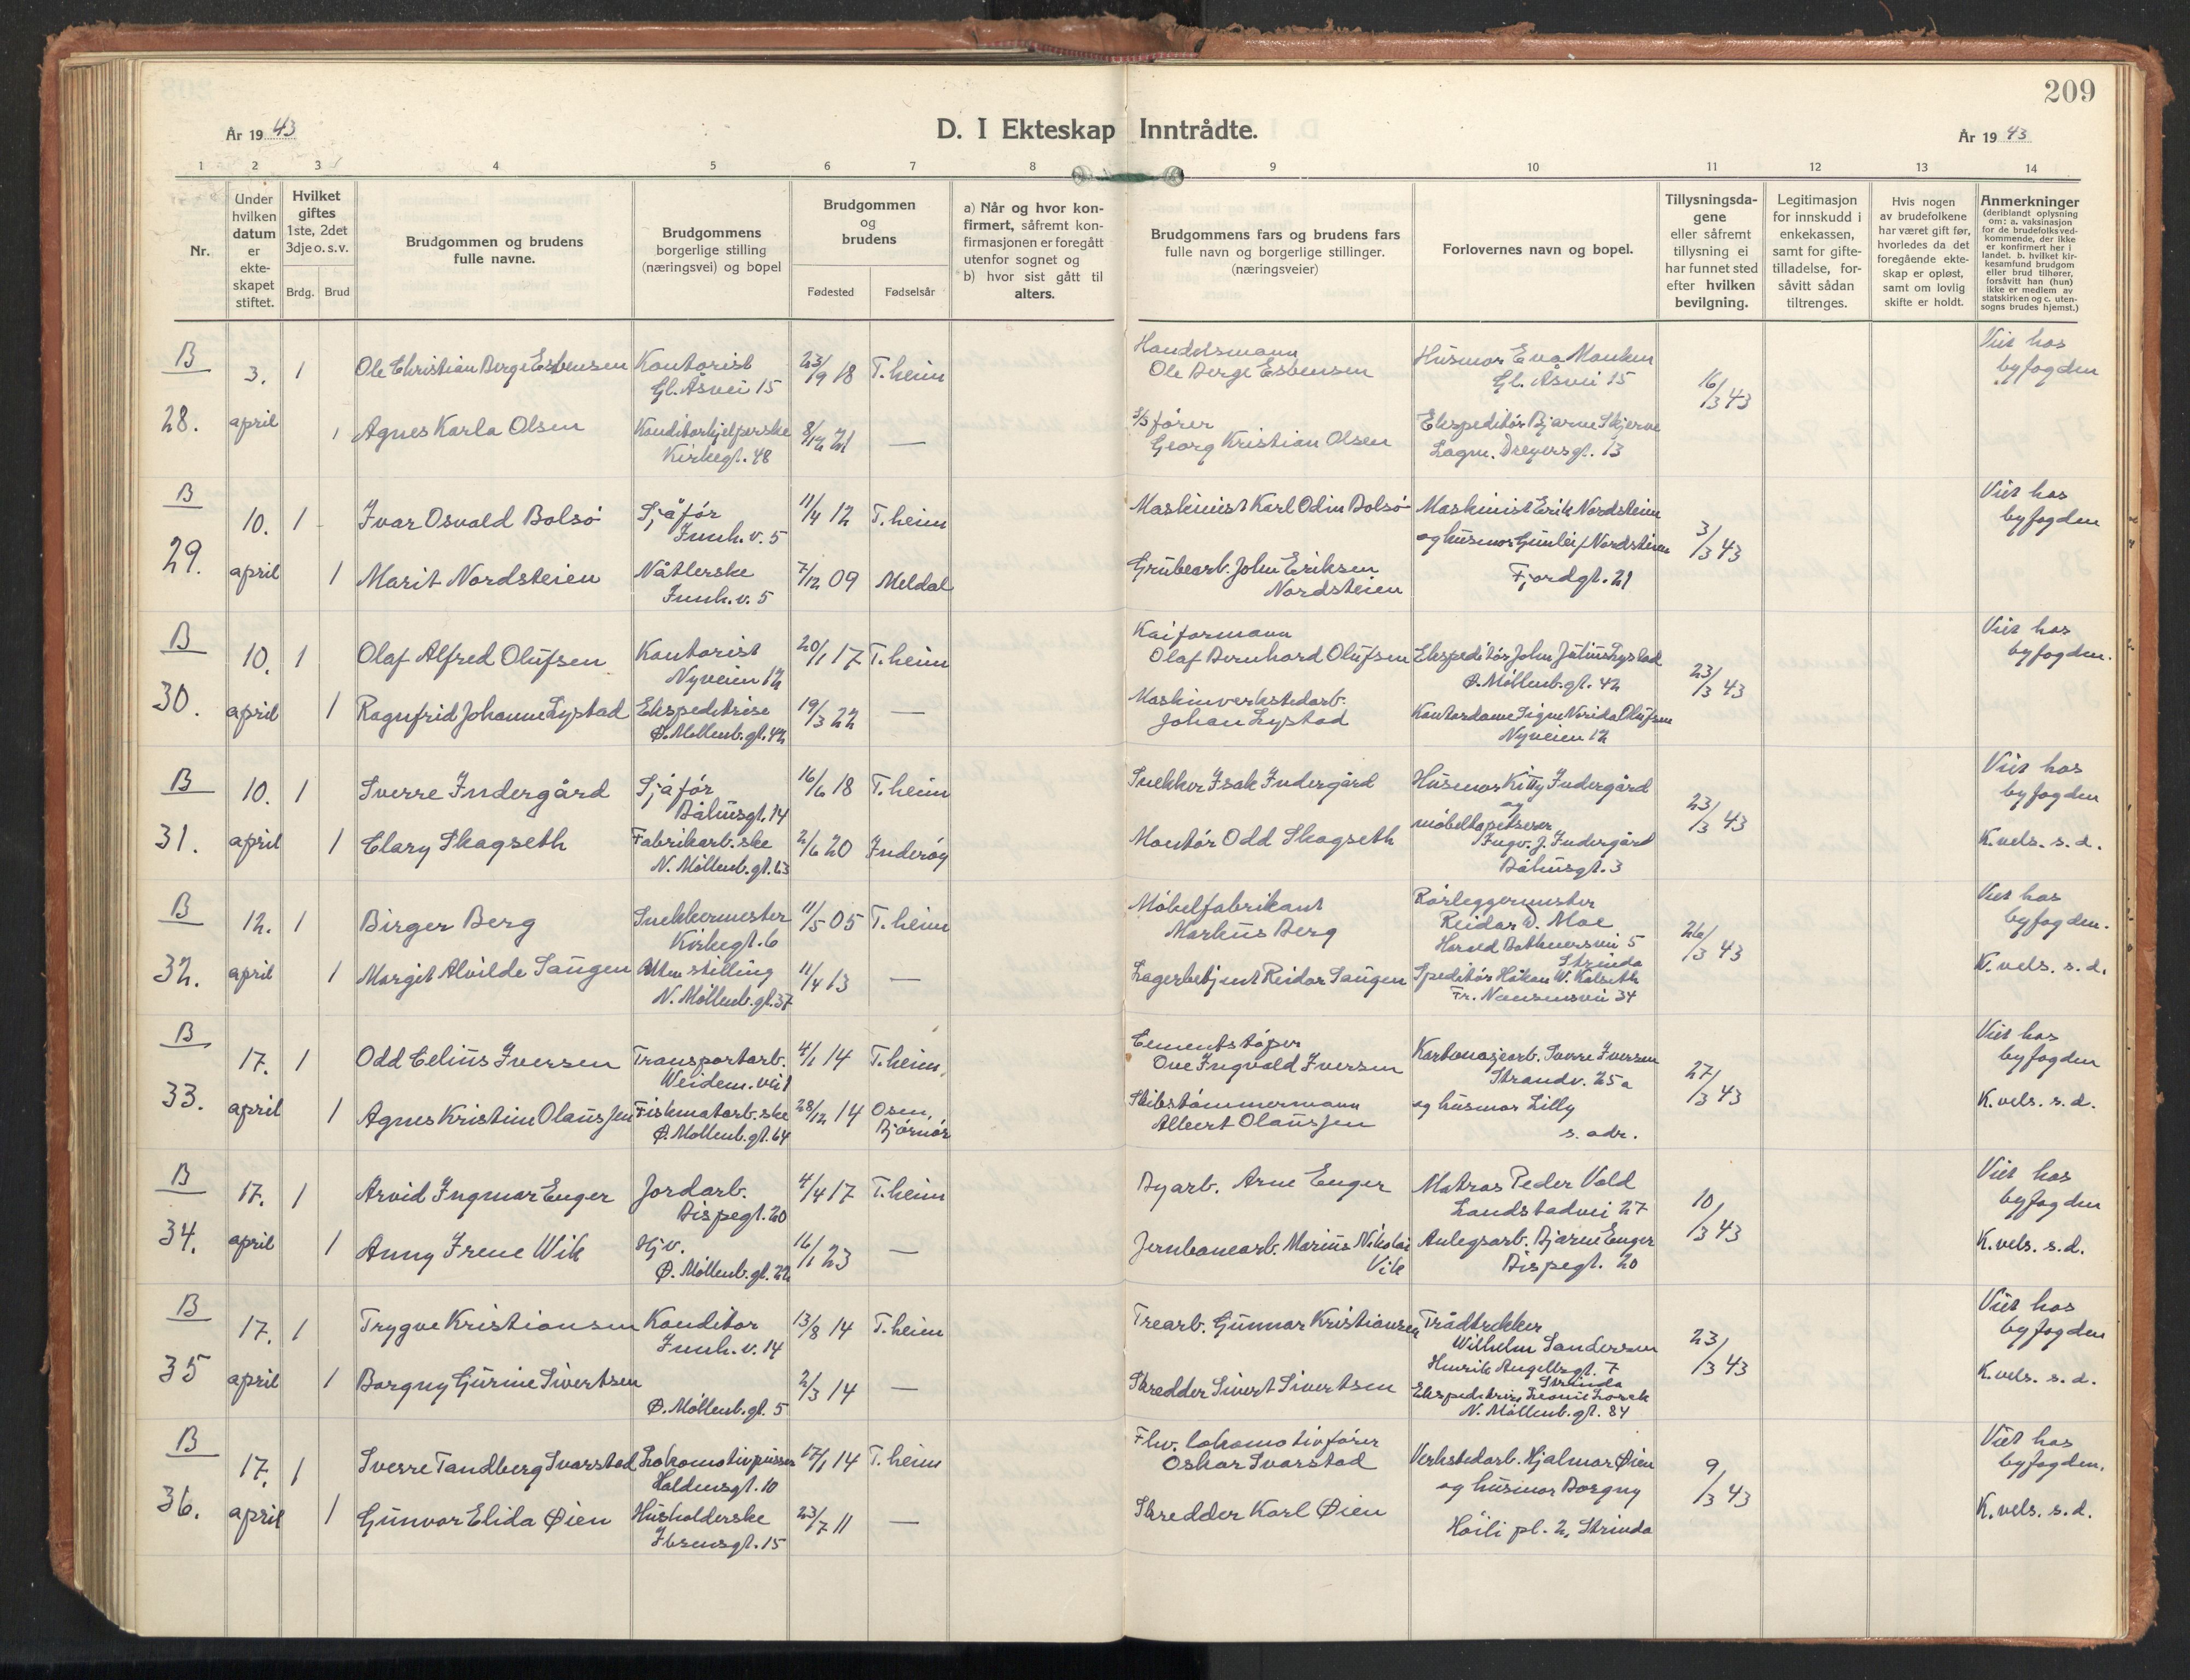 209
År 19 43
D. I Ekteskap Inntrådte.
År 19 43
1 2 3 4 5 6 7 8 9 10 11 12 13 14
Nr.
Under hvilken datum er ekte-skapet stiftet.
Hvilket giftes 1ste, 2det 3dje o. s. v.
Brdg. Brud
Brudgommen og brudens fulle navne.
Brudgommens borgerlige stilling (næringsvei) og bopel
Brudgommen og brudens
Fødested Fødselsår
a) Når og hvor kon-firmert, såfremt kon-firmasjonen er foregått utenfor sognet og b) hvor sist gått til alters.
Brudgommens fars og brudens fars fulle navn og borgerlige stillinger. (næringsveier)
Forlovernes navn og bopel.
Tillysningsda-gene eller såfremt tillysning ei har funnet sted efter hvilken bevilgning.
Legitimasjon for innskudd i enkekassen, samt for gifte-tilladelse, for-såvitt sådan tiltrenges.
Hvis nogen av brudefolkene har været gift før, hvorledes da det foregående ekte-skap er opløst, samt om lovlig skifte er holdt.
Anmerkninger (deriblandt oplysning om: a. vaksinasjon for de brudefolksved-kommende, der ikke er konfirmert her i landet. b. hvilket kir-kesamfund brudgom eller brud tilhører, forsåvitt han (hun) ikke er medlem av statskirken og c. uten-sogns brudes hjemst.)
B 28. 3. april 1
Ole Christian Berge Esbensen Kontorist Gl. Åsvei 15 23/9 18 T.heim
Handelsmann Ole Berge Esbensen
Husmor Eva Monken Gl. Åsvei 15
16/3 43
Viet hos byfogden
1 Agnes Karla Olsen Konditorhjelperske Kirkegt. 48 8/12 21 —
s/s fører Georg Kristian Olsen
Ekspeditør Bjarne Skjerve Lagm. Dreyersgt. 13
B 29. 10. april 1
Ivar Osvald Bolsø Sjåfør Innh. v. 5 11/4 12 T.heim
Maskinist Karl Odin Bolsø
Maskinist Erik Nordsteien og husmor Gunleif Nordsteien Fjordgt. 21
3/3 43
Viet hos byfogden
1 Marit Nordsteien Nåtlerske Innh. v. 5 7/12 09 Meldal
Grubearb. John Eriksen Nordsteien
B 30. 10. april 1
Olaf Alfred Olufsen Kontorist Nyveien 12 20/1 17 T.heim
Kaiformann Olaf Bernhard Olufsen
Ekspeditør John Julius Lystad Ø. Møllenb. gt. 42
23/3 43
Viet hos byfogden.
1 Ragnfrid Johanne Lystad Ekspeditrise Ø. Møllenb. gt. 42 19/3 22 —
Maskinverkstedarb. Johan Lystad
Kontordame Signe Olufsen Nyveien 12
B 31. 10. april 1
Sverre Indergård Sjåfør Båhusgt. 14 16/6 18 T.heim
Snekker Isak Indergård
Husmor Kitty Indergård og møbeltapetserer Ingv. J. Indergård Båhusgt. 3
23/3 43
Viet hos byfogden
1 Clary Skagseth Fabrikarb.ske N. Møllenb. gt. 63 2/6 20 Inderøy
Montør Odd Skagseth
K.vels. s.d.
B 32. 12. april 1
Birger Berg Snekkermester Kirkegt. 6 11/5 05 T.heim
Møbelfabrikant Markus Berg
Rørleggermester Reidar W. Moe Harald Bothnersvei 5 Strinda
26/3 43
Viet hos byfogden.
1 Margit Alvilde Saugen Uten stilling N. Møllenb. gt. 37 11/4 13 —
Lagerbetjent Reidar Saugen
Speditør Håkon W. Kalseth Fr. Nansensvei 34
K.vels. s.d.
B 33. 17. april 1
Odd Celius Iversen Transportarb. Weidem. vei 1 4/1 14 T.heim,
Cementstøper Ove Ingvald Iversen
Kartonasjearb. Sverre Iversen Strandv. 25a
27/3 43
Viet hos byfogden
1 Agnes Kristine Olaussen Fiskematarb.ske Ø. Møllenb. gt. 64 28/12 14 Osen, Bjørnør
Skibstømmermann Albert Olaussen
og husmor Lilly s. adr.
K.vels. s.d.
B 34. 17. april 1
Arvid Ingmar Enger Jordarb. Bispegt. 20 4/4 17 T.heim
Byarb. Arne Enger
Matros Peder Vold Landstadvei 27
10/3 43
Viet hos byfogden
1 Anny Irene Wik Hjv. Ø. Møllenb. gt. 22 16/1 23 —
Jernbanearb. Marius Nikolai Vik
Anlegsarb. Bjarne Enger Bispegt. 20
K.vels. s.d.
B 35 17. april 1
Trygve Kristiansen Konditor Innh. v. 14 13/8 14 T.heim
Trearb. Gunnar Kristiansen
Trådtrekker Wilhelm Sandersen Henrik Angellsgt. 7 Strinda
23/3 43
Viet hos byfogden
1 Borgny Gurine Sivertsen Ø. Møllenb. gt. 5 2/3 14 —
Skredder Sivert Sivertsen
Ekspeditrise N. Møllenb. gt. 84
K.vels. s.d.
B 36. 17. april 1
Sverre Tandberg Svarstad Lokomotivpusser Haldensgt. 10 17/1 14 T.heim
Fhv. lokomotivfører Oskar Svarstad
Verkstedarb. Hjalmar Øien og husmor Borgny Høili pl. 2, Strinda
9/3 43
Viet hos byfogden.
1 Gunvor Elida Øien Husholderske Ibsensgt. 15 23/7 11 —
Skredder Karl Øien
K.vels. s.d.